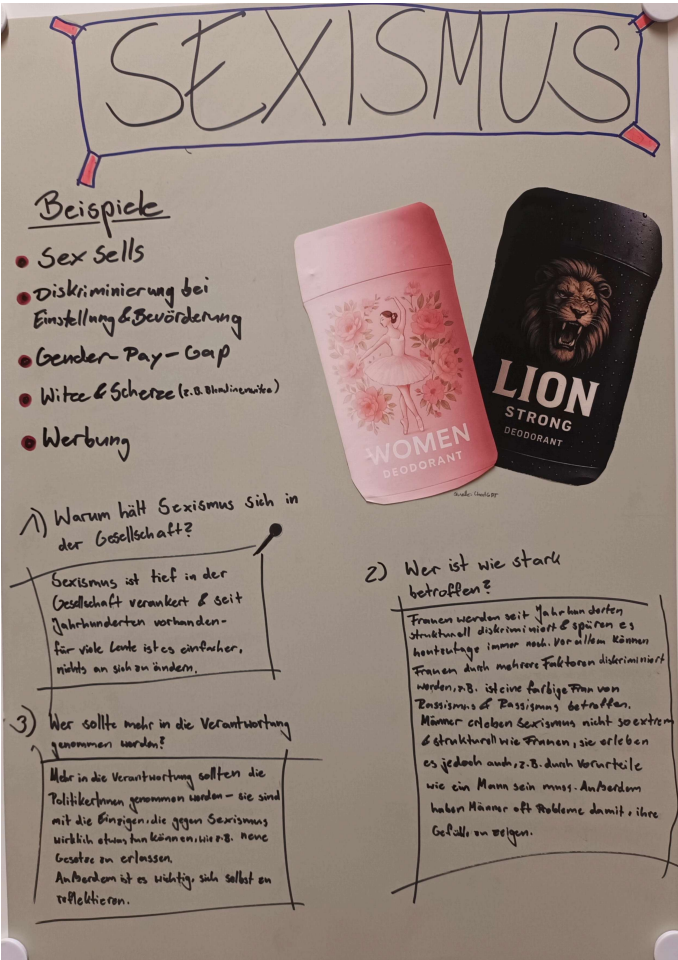 SEXISMUS
Beispiele
Sex sells
Diskriminierung bei
Einstellung & Bevörderung
Gender-Pay-Gap
Witze & Scherze (z.B. Blondinenwitze)
Werbung
WOMEN
DEODORANT
LION
STRONG
DEODORANT
1) Warum hält Sexismus sich in
der Gesellschaft?
Sexismus ist tief in der
Gesellschaft verankert & seit
Jahrhunderten vorhanden-
für viele Leute ist es einfacher,
nichts an sich zu ändern.
2) Wer ist wie stark
betroffen?
Frauen werden seit Jahrhunderten
strukturell diskriminiert & spüren es
heutzutage immer noch. Vor allem können
Frauen durch mehrere Faktoren diskriminiert
werden, z.B. ist eine farbige Frau von
Rassismus & Rassismus betroffen.
Männer erleben Sexismus nicht so extrem
& strukturell wie Frauen, sie erleben
es jedoch auch, z.B. durch Vorurteile
wie ein Mann sein muss. Außerdem
haben Männer oft Probleme damit, ihre
Gefühle zu zeigen.
3) Wer sollte mehr in die Verantwortung
genommen werden?
Mehr in die Verantwortung sollten die
PolitikerInnen genommen werden - sie sind
mit die Einzigen, die gegen Sexismus
wirklich etwas tun können, wie z.B. neue
Gesetze zu erlassen.
Außerdem ist es wichtig, sich selbst zu
reflektieren.